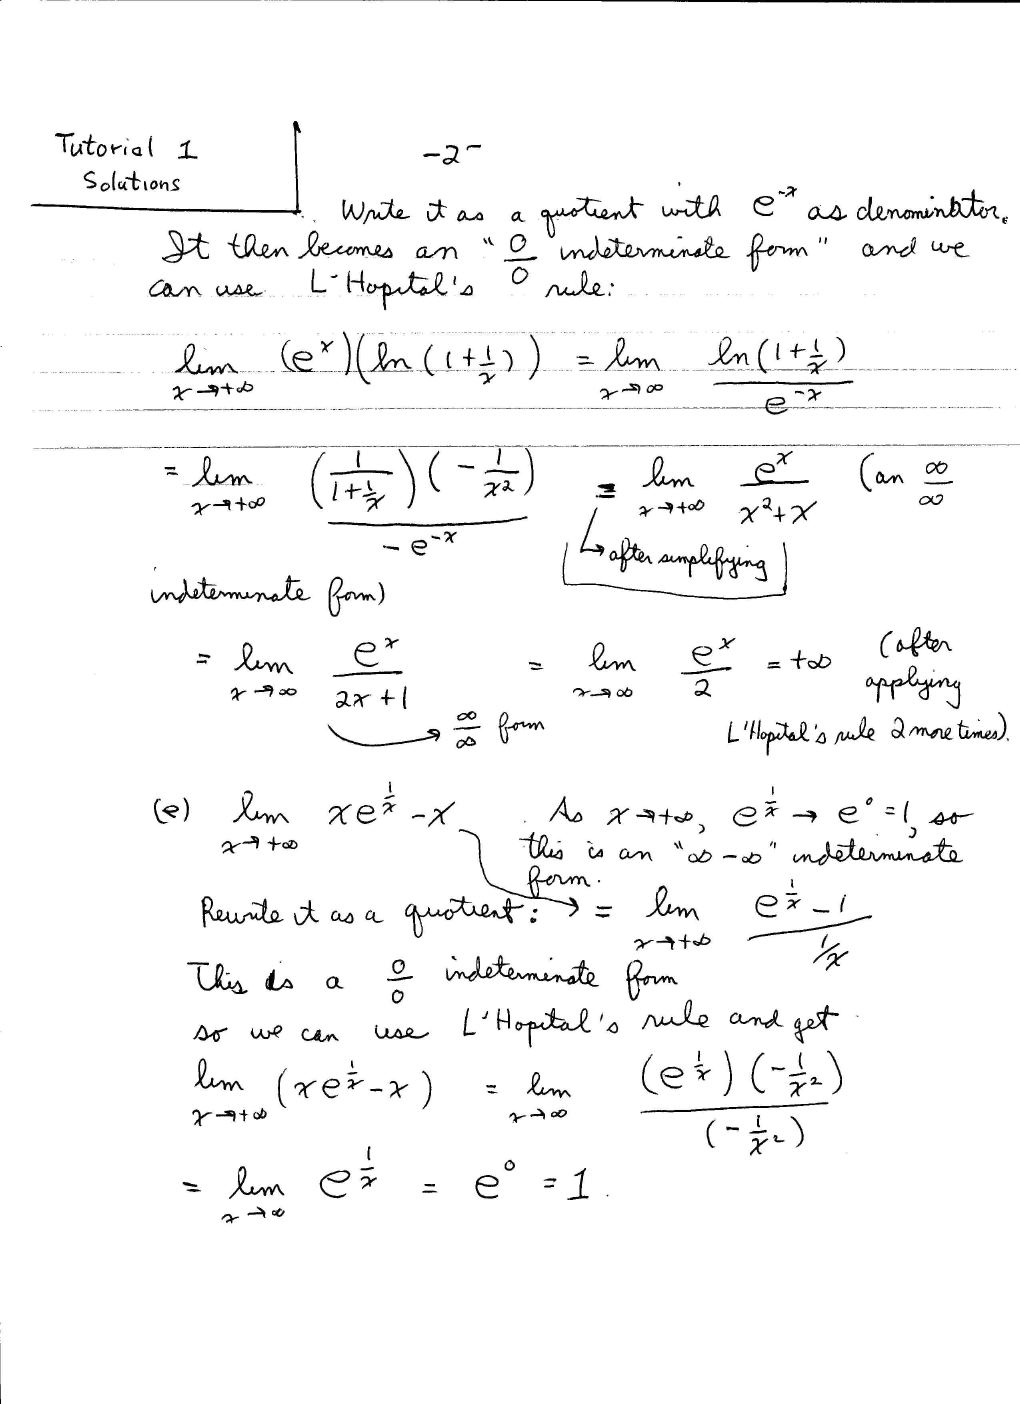 Tutorial 1
Solutions
-2-
Write it as a quotient with e^{-x} as denominator.
It then becomes an "0/0 indeterminate form" and we
can use L'Hopital's rule:
lim_{x→+∞} (e^x)(ln(1+1/x)) = lim_{x→∞} ln(1+1/x)/e^{-x}
= lim_{x→+∞} (1/(1+1/x))(-1/x^2)/-e^{-x} = lim_{x→+∞} e^x/(x^2+x) (an ∞/∞
↳ after simplifying
indeterminate form)
= lim_{x→∞} e^x/(2x+1) = lim_{x→∞} e^x/2 = +∞ (after
applying
→ ∞/∞ form L'Hopital's rule 2 more times).
(e) lim_{x→+∞} xe^{1/x} - x As x→+∞, e^{1/x} → e^0 = 1, so
this is an "∞-∞" indeterminate
form.
Rewrite it as a quotient: → = lim_{x→+∞} (e^{1/x} - 1)/(1/x)
This is a 0/0 indeterminate form
so we can use L'Hopital's rule and get
lim_{x→+∞} (xe^{1/x} - x) = lim_{x→∞} (e^{1/x})(-1/x^2)/(-1/x^2)
= lim_{x→∞} e^{1/x} = e^0 = 1.